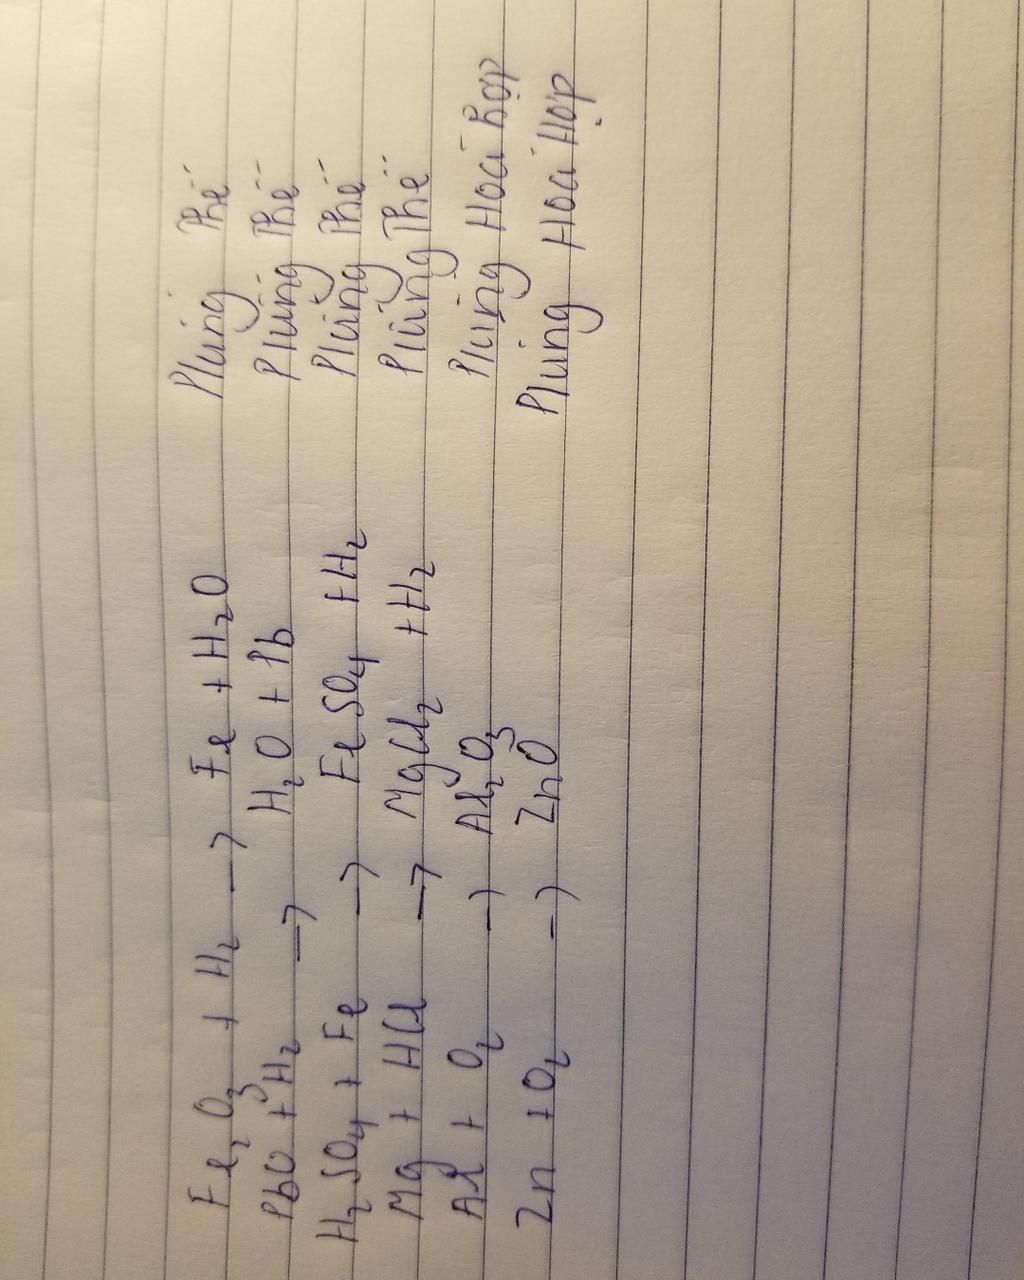 Fe2O3 + H2 → Fe + H2O Phứng Thế
PbO + H2 → H2O + Pb Phứng Thế
H2SO4 + Fe → FeSO4 + H2 Phứng Thế
Mg + HCl → MgCl2 + H2 Phứng Thế
Al + O2 → Al2O3 Phứng Hoá hợp
Zn + O2 → ZnO Phứng Hoá Hợp